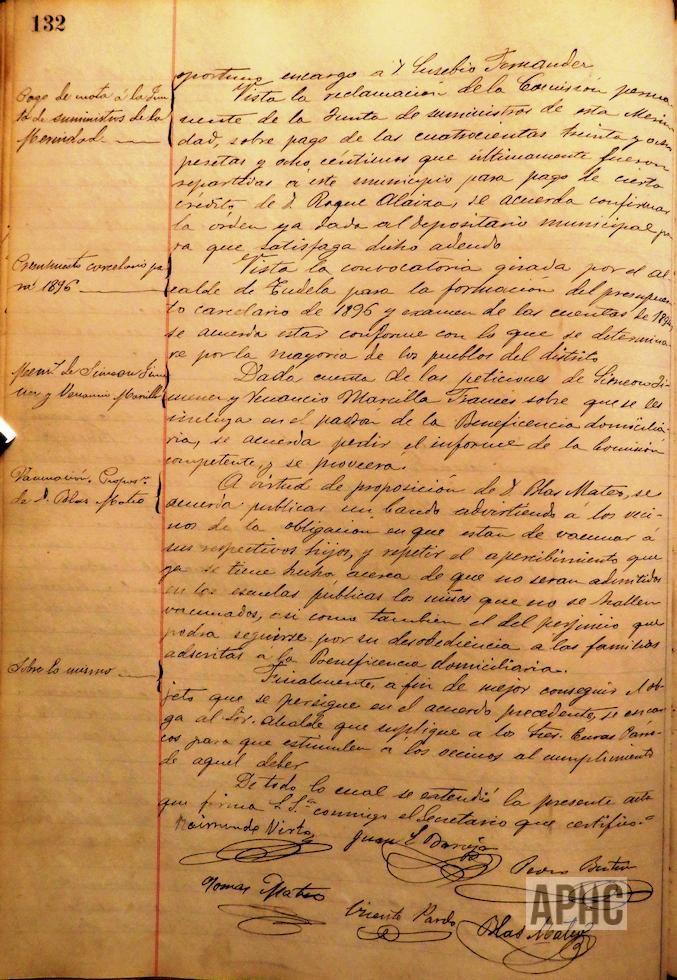 132
oportuno encargo a D. Eusebio Fernandez
Pago de cuota á la Jun-
ta de suministros de la
Merindad.
Vista la reclamacion de la Comisión perma-
nente de la Junta de suministros de esta Merin-
dad, sobre pago de las cuatrocientas treinta y ocho
pesetas y ocho centimos que ultimamente fueron
repartidas á este municipio para pago de cierto
crédito de D. Roque Alaiza, se acuerda confirmar
la orden ya dada al depositario municipal pa-
ra que satisfaga dicho adeudo
carcelario pa-
ra 1896
Vista la convocatoria girada por el al-
calde de Tudela para la formacion del presupues-
to carcelario de 1896 y examen de las cuentas de
se acuerda estar conforme con lo que se determina-
re por la mayoria de los pueblos del distrito
de Simeon Jime-
nez y Venancio Marcilla
Dada cuenta de las peticiones de Simeon Ji-
menez y Venancio Marcilla Frances sobre que se les
incluya en el padrón de la Beneficencia domicilia-
ria, se acuerda pedir el informe de la Comisión
competente, y se proveera.
Vacunación. Propos.
de D. Blas Mateo
A virtud de proposición de D. Blas Mateo, se
acuerda publicar un bando advirtiendo á los veci-
nos de la obligacion en que estan de vacunar á
sus respectivos hijos, y repetir el apercibimiento que
ya se tiene hecho, acerca de que no seran admitidos
en las escuelas públicas los niños que no se hallen
vacunados, asi como tambien el del perjuicio que
podra seguirse por su desobediencia a las familias
adscritas á la Beneficencia domiciliaria.
Sobre lo mismo
Finalmente, a fin de mejor conseguir el ob-
jeto que se persigue en el acuerdo precedente, se encar-
ga al Sr. Alcalde que suplique a los Sres. Curas Párro-
cos para que estimulen a los vecinos al cumplimiento
de aquel deber
De todo lo cual se extendió la presente acta
que firma S. Sª conmigo el Secretario que certifico.
Raimundo Virto
Juan
Pedro
Tomas Mateo
Vicente Pardo
Blas Mateo
APHC